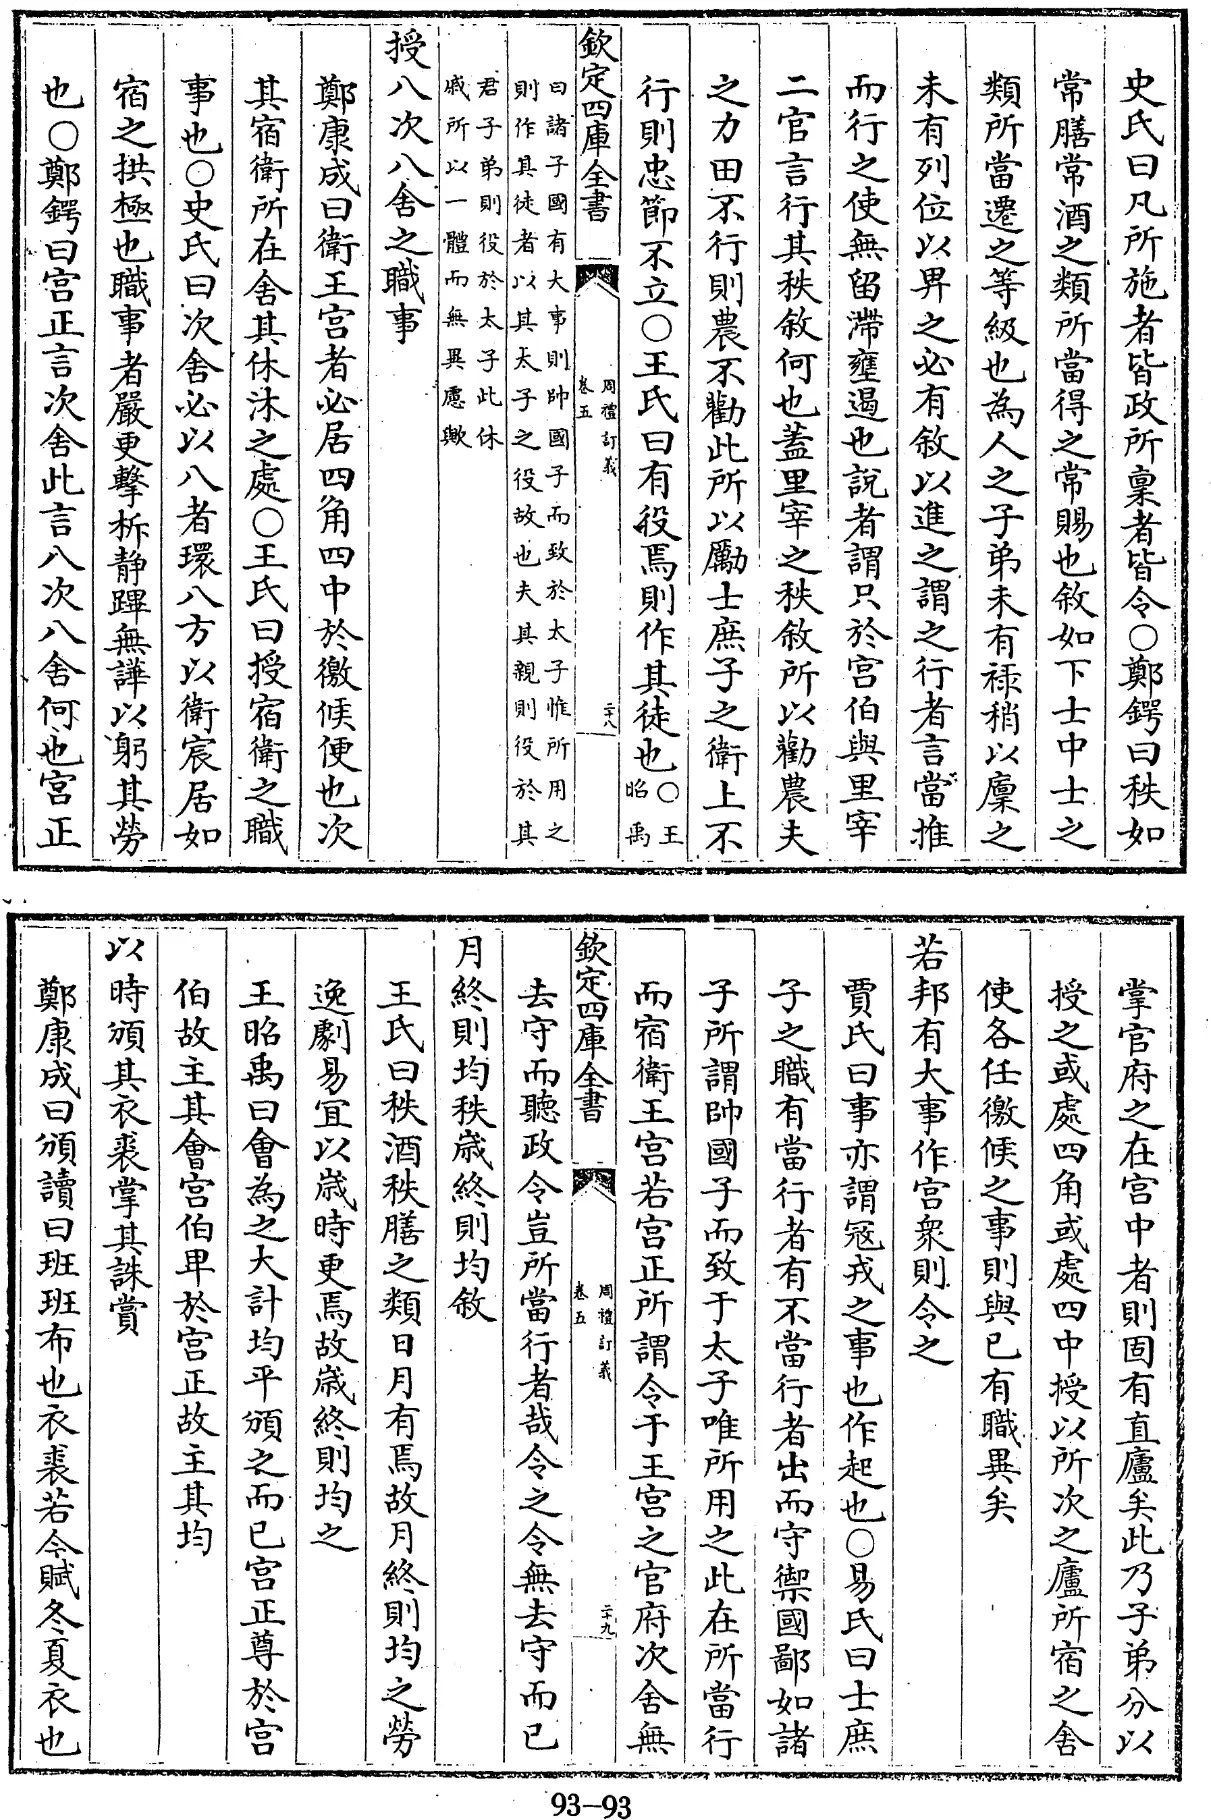 史氏曰凡所施者皆政所稟者皆令○鄭鍔曰秩如
常膳常酒之類所當得之常賜也敘如下士中士之
類所當遷之等級也為人之子弟未有祿稍以廩之
未有列位以畀之必有敘以進之謂之行者言當推
而行之使無留滯壅遏也說者謂只於宮伯與里宰
二官言行其秩敘何也蓋里宰之秩敘所以勸農夫
之力田不行則農不勸此所以勵士庶子之衛上不
行則忠節不立○王氏曰有役焉則作其徒也○王
昭禹
欽定四庫全書
周禮訂義
卷五
二十八
曰諸子國有大事則帥國子而致於太子惟所用之
則作其徒者以其太子之役故也夫其親則役於其
君子弟則役於太子此休
戚所以一體而無異慮歟
授八次八舍之職事
鄭康成曰衛王宮者必居四角四中於徼候便也次
其宿衛所在舍其休沐之處○王氏曰授宿衛之職
事也○史氏曰次舍必以八者環八方以衛宸居如
宿之拱極也職事者嚴更擊柝靜蹕無譁以躬其勞
也○鄭鍔曰宮正言次舍此言八次八舍何也宮正
掌官府之在宮中者則固有直廬矣此乃子弟分以
授之或處四角或處四中授以所次之廬所宿之舍
使各任徼候之事則與已有職異矣
若邦有大事作宮衆則令之
賈氏曰事亦謂冦戎之事也作起也○易氏曰士庶
子之職有當行者有不當行者出而守禦國鄙如諸
子所謂帥國子而致于太子唯所用之此在所當行
而宿衛王宮若宮正所謂令于王宮之官府次舍無
欽定四庫全書
周禮訂義
卷五
二十九
去守而聽政令豈所當行者哉令之令無去守而已
月終則均秩歳終則均敘
王氏曰秩酒秩膳之類日月有焉故月終則均之勞
逸劇易宜以歳時更焉故歳終則均之
王昭禹曰會為之大計均平頒之而已宮正尊於宮
伯故主其會宮伯卑於宮正故主其均
以時頒其衣裘掌其誅賞
鄭康成曰頒讀曰班班布也衣裘若今賦冬夏衣也
93-93